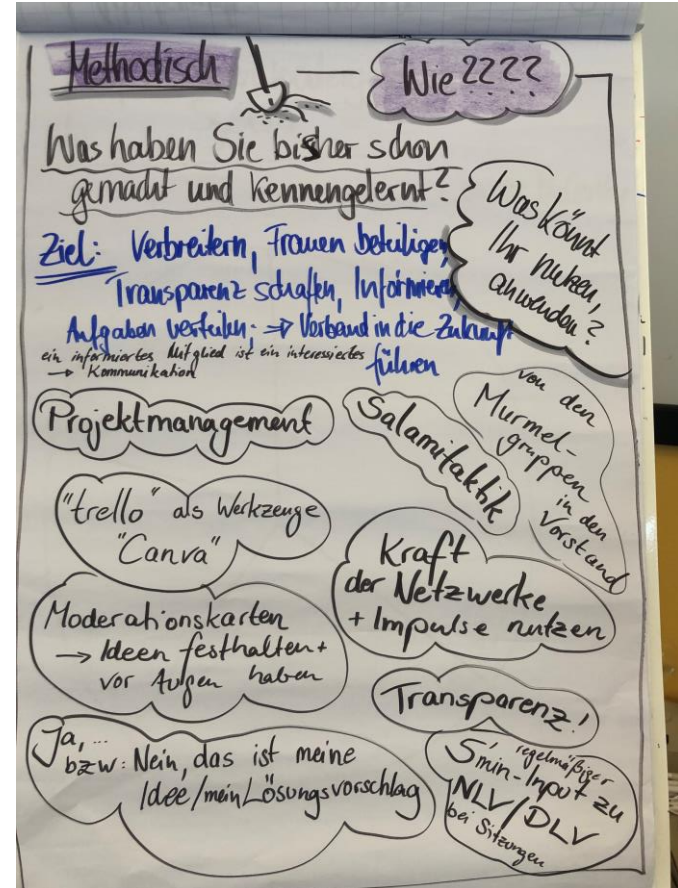 Methodisch
Wie ????
Was haben Sie bisher schon
gemacht und kennengelernt?
Was könnt
Ihr nutzen,
anwenden?
Ziel: Verbreitern, Frauen beteiligen,
Transparenz schaffen, Informieren,
Aufgaben verteilen; → Verband in die Zukunft
führen
ein informiertes Mitglied ist ein interessiertes
→ Kommunikation
Projektmanagement
Salamitaktik
von den
Murmel-
gruppen
in den
Vorstand
"trello" als Werkzeuge
"Canva"
Kraft
der Netzwerke
+ Impulse nutzen
Moderationskarten
→ Ideen festhalten +
vor Augen haben
Transparenz!
Ja, ...
bzw: Nein, das ist meine
Idee/mein Lösungsvorschlag
regelmäßiger
5min-Input zu
NLV/DLV
bei Sitzungen